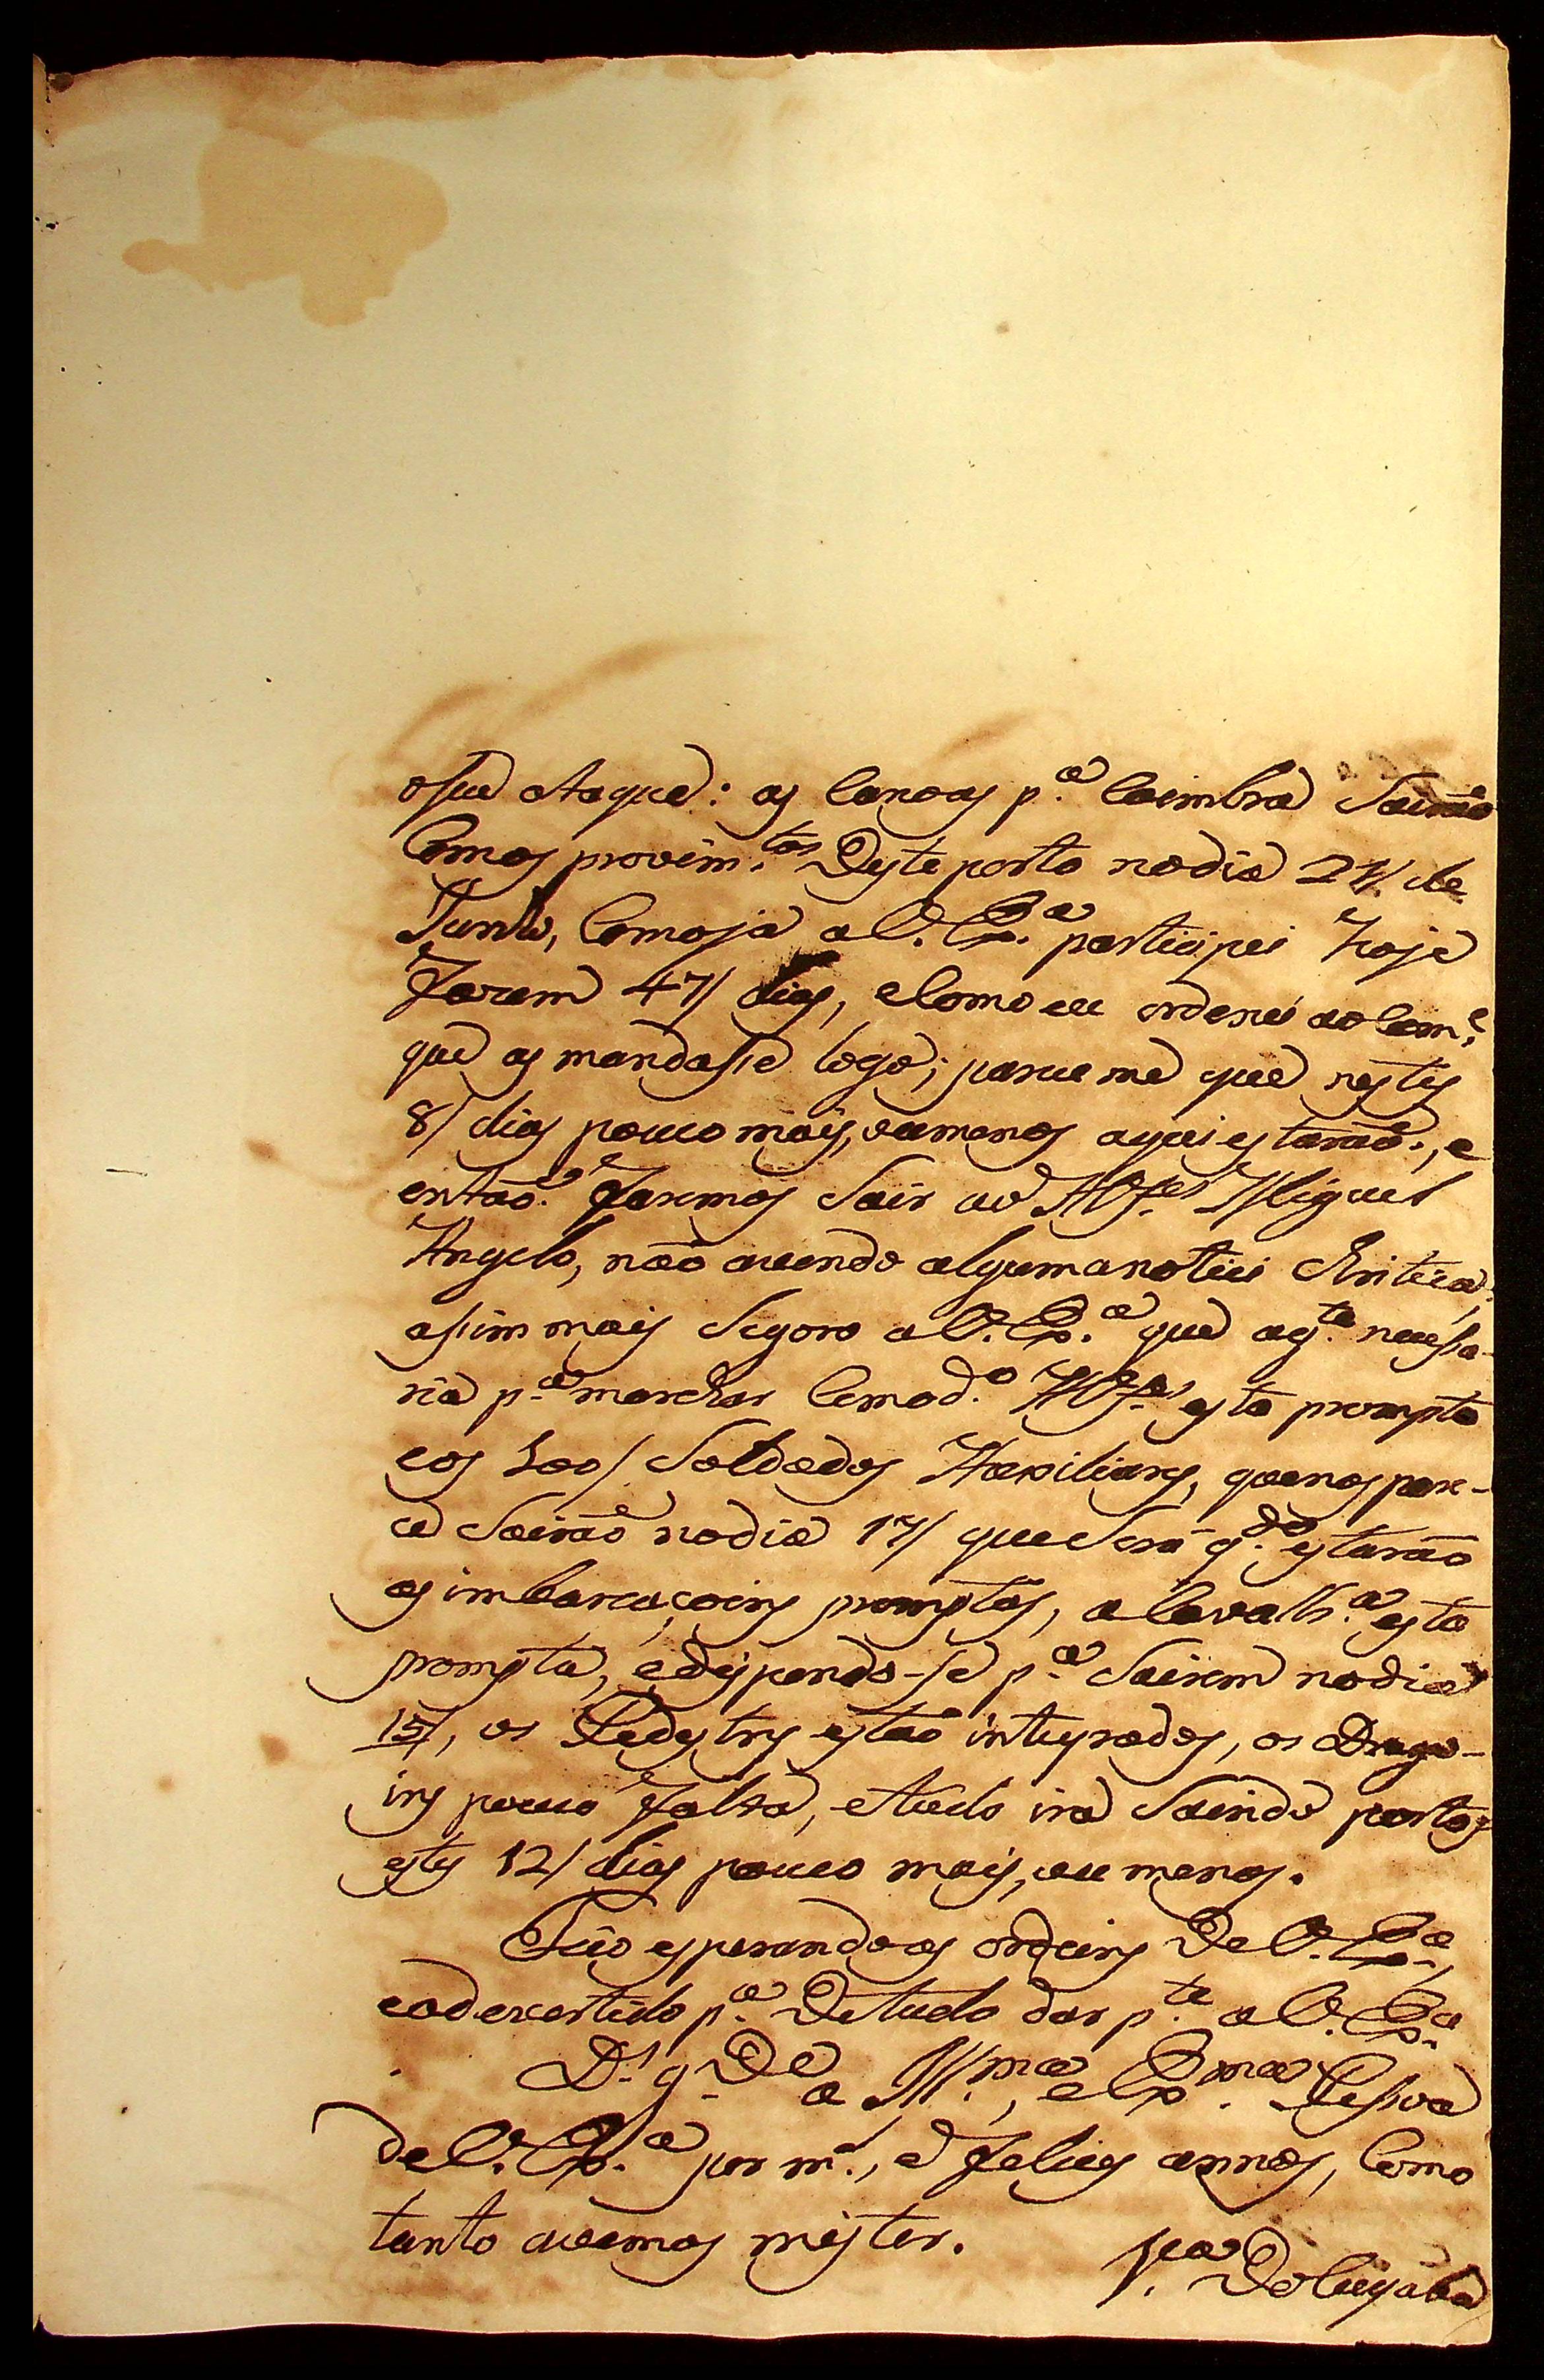 oseu ataque: as Canoas p.ª Coimbra Sairaõ
Com os provim.tos Deste porto no dia 24/ de
Junho, Como ja a V. Ex.ª participei hoje
Fazem 47/ dias, e Como eu ordenei ao Com.e
que as mandasse logo; pareceme que nestes
8/ dias pouco mais, ou menos aqui estaraõ., e
entaõ. Faremos Sair ao Alf.es Miguel
Angelo, naõ avendo alguma notici
asim mais Seguro a V. Ex.ª que a g.te nesesa-
ria p.ª marchar Com o d.º Alf.es esta prompta
e os 200/ Soldados Auxiliares, que nos pare-
ce Sairaõ no dia 17/ que Será q.do estaraõ
as imbarcaçoins promptas, a Cavallr.ª esta
prompta, e dispondo-se p.ª Sairem no dia
15/, os Pedestres estaõ integrados, os Drago-
ins pouco Falta, e tudo irá Saindo por todos
estes 12/ dias pouco mais, ou menos.
Fico esperando as ordeins De V. Ex.ª,
e adevertido p.ª De tudo dar p.te a V. Ex.ª
D.s g.De a Ill.ma, e Ex.ma Pesoa
de V. Ex.ª por m.s, e Felices annos, Como
tanto avemos mister.
V.ª Do Cuyabá